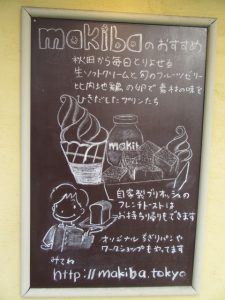 makibaのおすすめ
秋田から毎日とりよせる
生ソフトクリームと旬のフルーツゼリー
比内地鶏の卵で素材の味を
ひきだしたプリンたち
makib
自家製ブリオッシュの
フレンチトーストは
お持ち帰りもできます
オリジナルちぎりパンや
ワークショップもやってます
http://makiba.tokyo